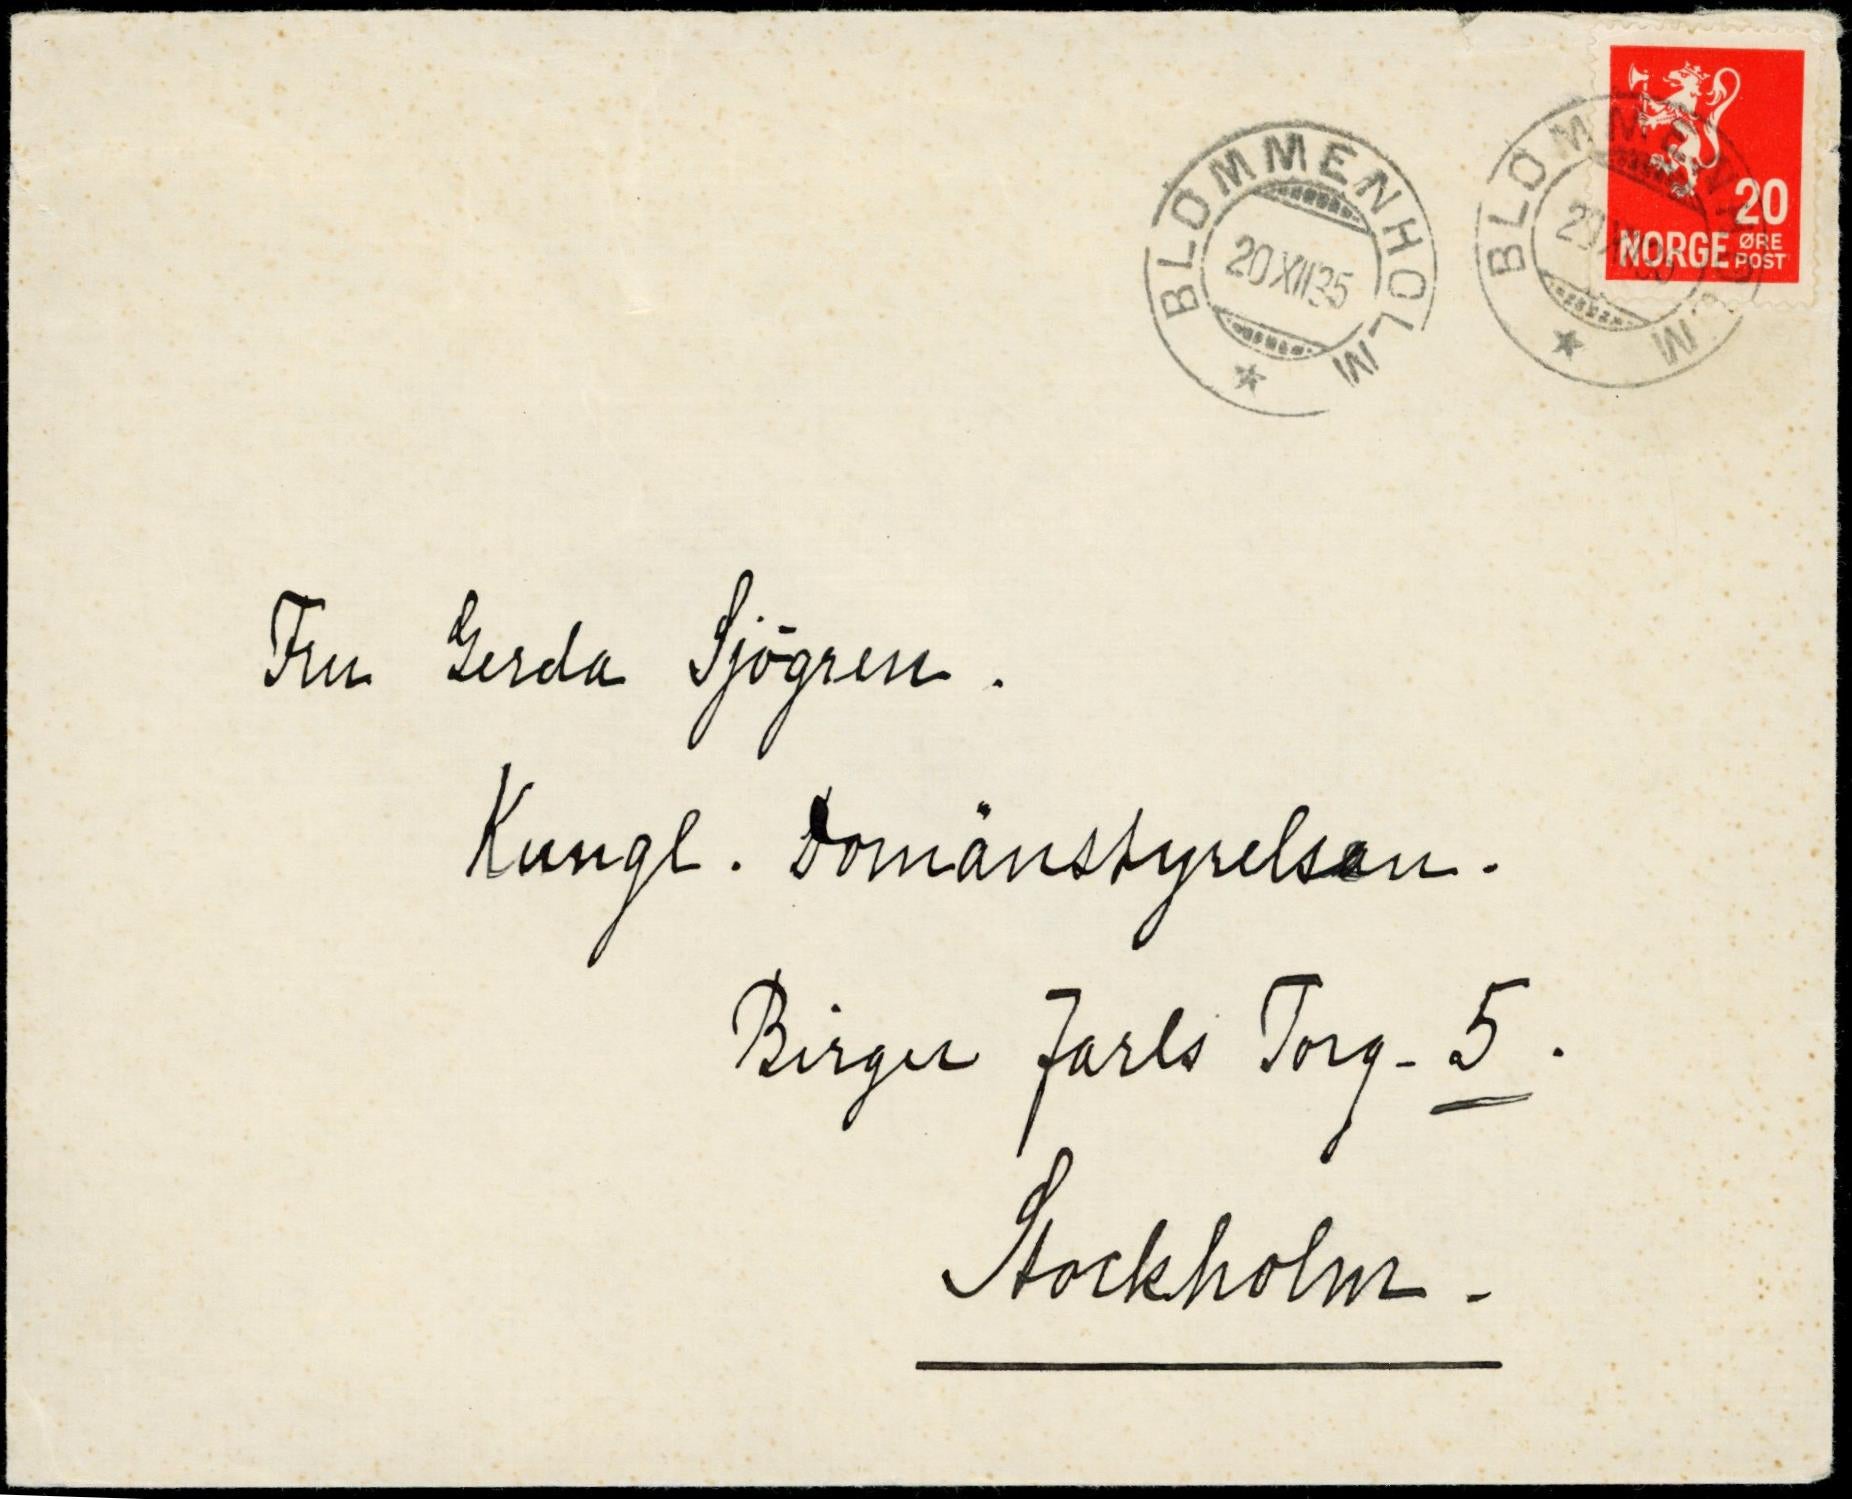 BLOMMENHOLM
20 XII 35
BLOMMENHOLM
20 XII 35
20
NORGE ØRE POST
Fru Gerda Sjögren.
Kungl. Domänstyrelsen.
Birger Jarls Torg - 5.
Stockholm -